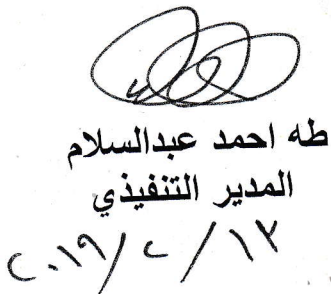 طه احمد عبدالسلام
المدير التنفيذي
٢٠١٩/٢/١٣